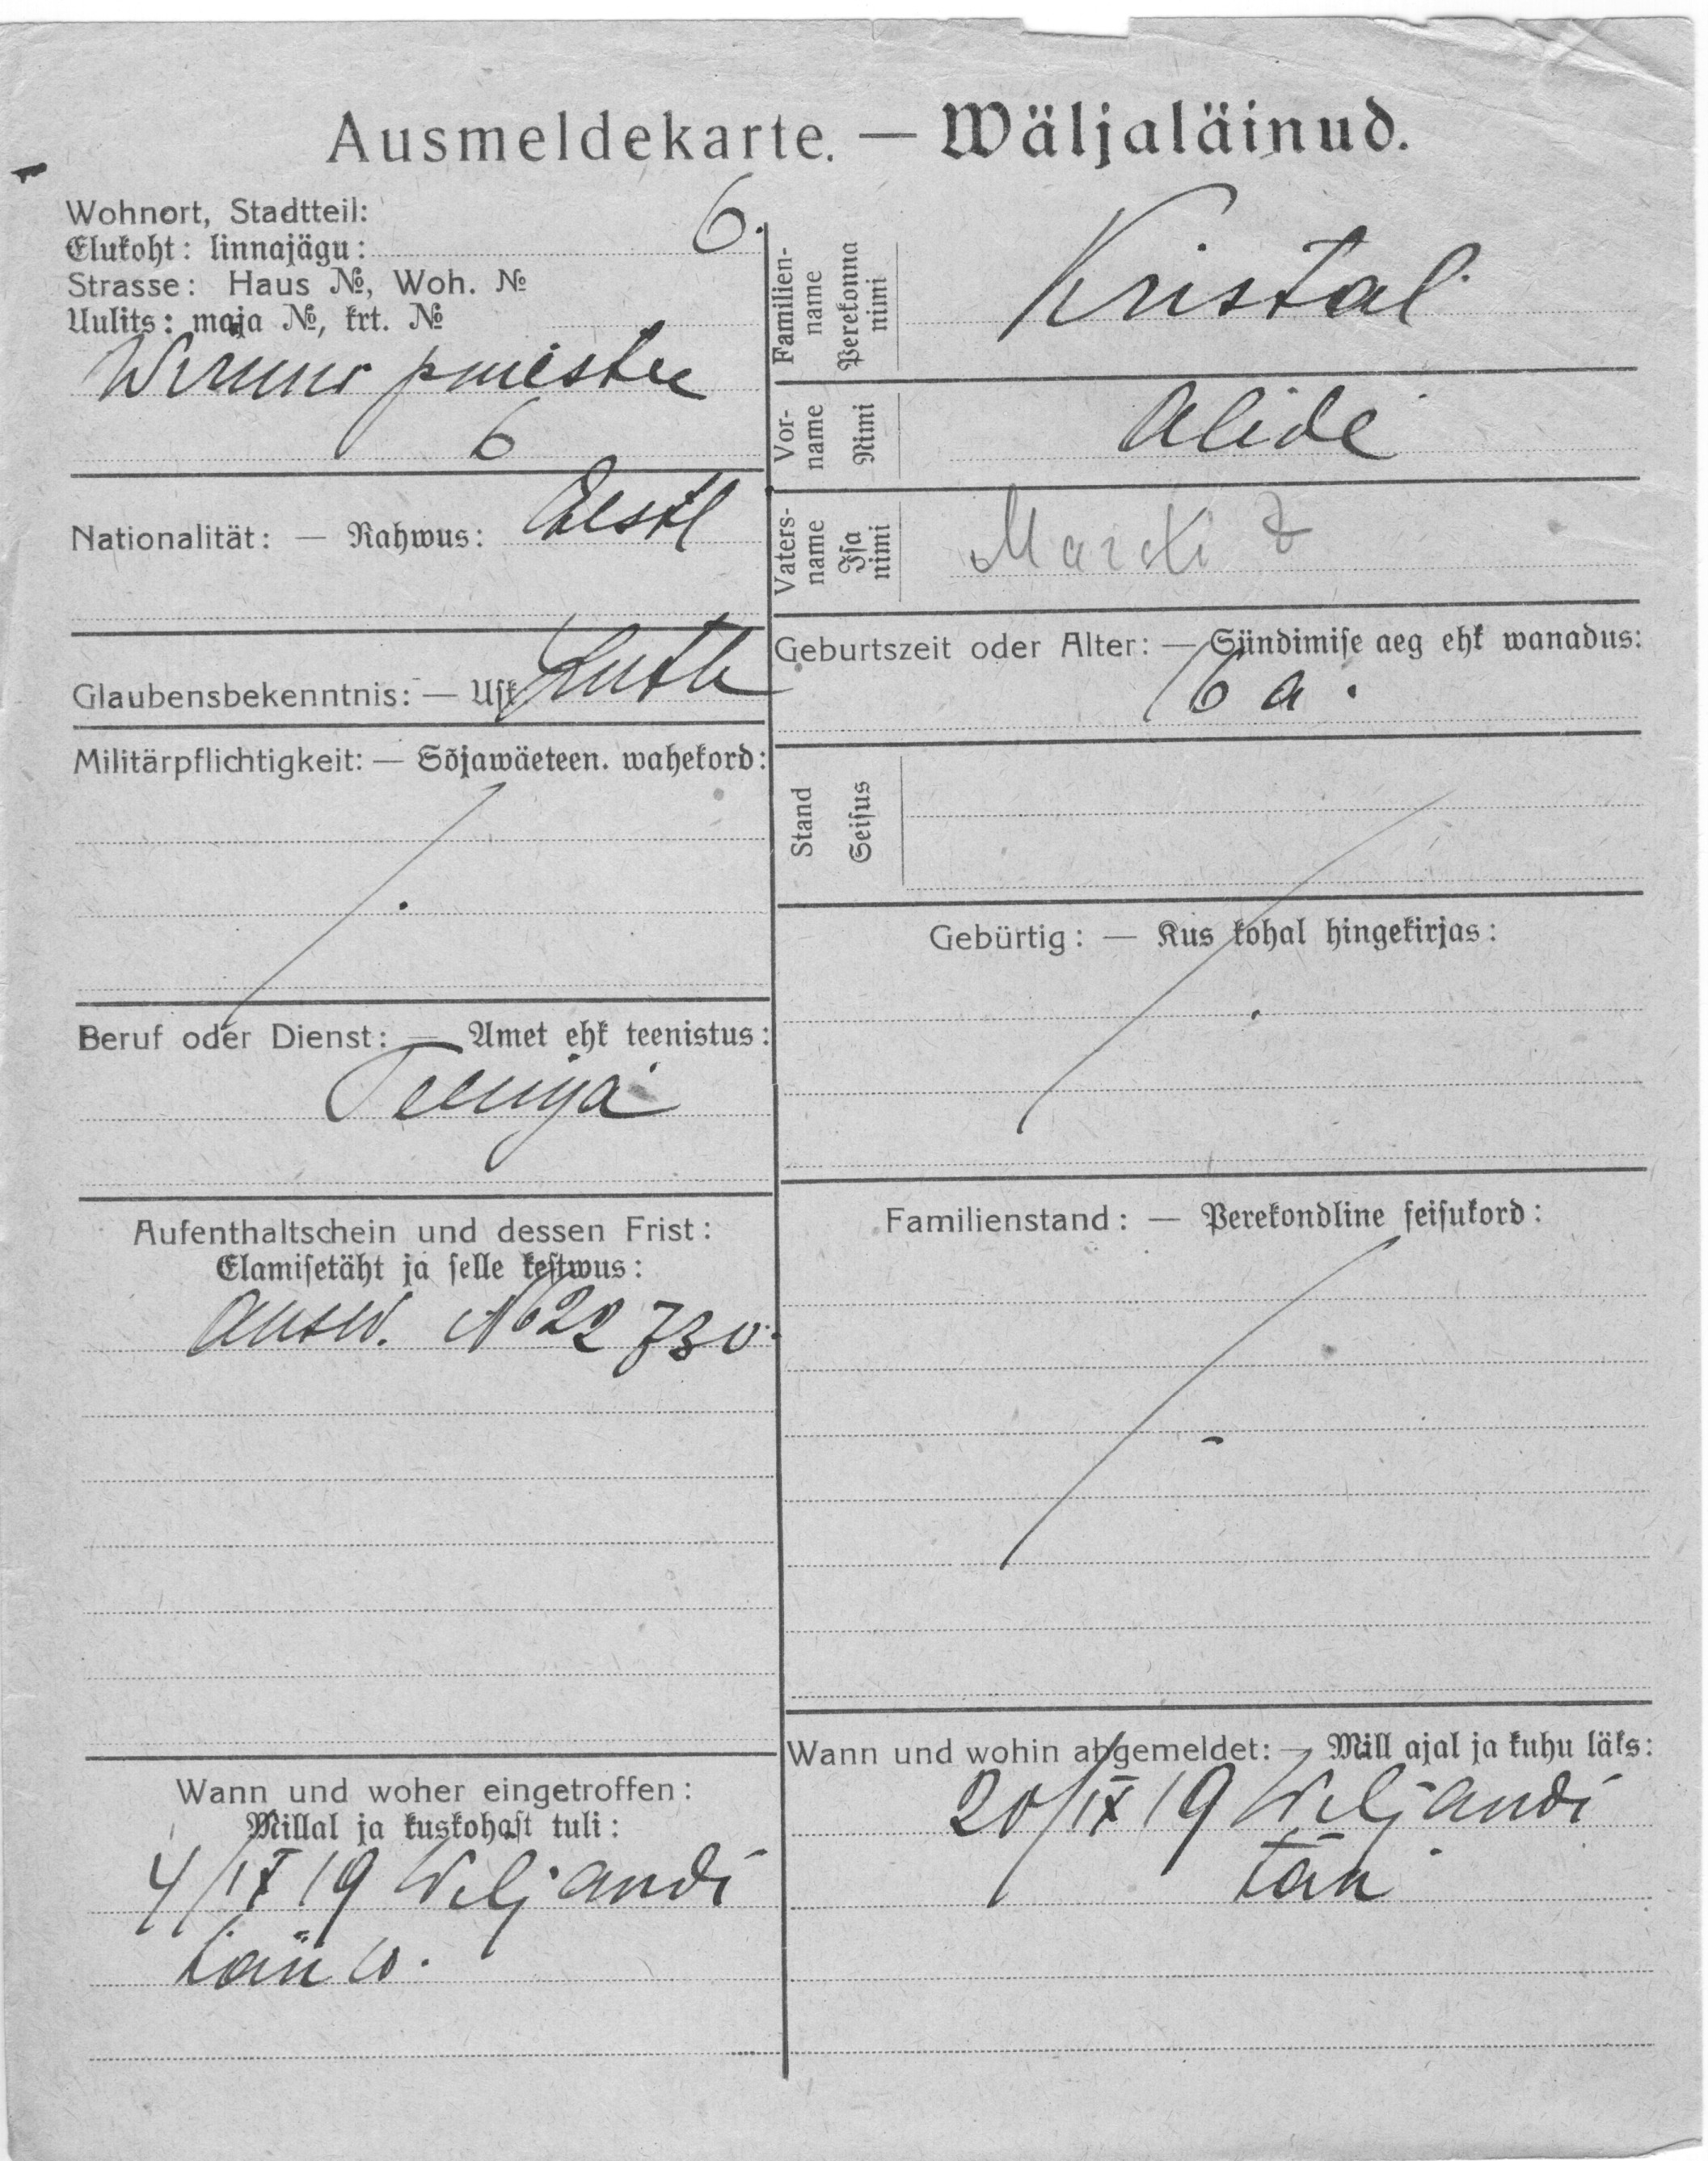 Ausmeldekarte. — Wäljaläinud.
Wohnort, Stadtteil:
Elukoht: linnajägu: 6.
Strasse: Haus №, Woh. №
Uulits: maja №, krt. №
puiestee
6
Nationalität: — Rahwus: Eesti
Glaubensbekenntnis: — Usk Luth
Militärpflichtigkeit: — Sõjawäeteen. wahekord:
Beruf oder Dienst: — Amet ehk teenistus:
Teenija
Aufenthaltschein und dessen Frist:
Elamisetäht ja selle kestwus:
Ausw. № 22730.
Wann und woher eingetroffen:
Millal ja kuskohast tuli:
4/IX 19 Wiljandi
Familien-
name
Perekonna
nimi
Kristal
Vor-
name
Nimi
Alide
Vaters-
name
Isa
nimi
Geburtszeit oder Alter: — Sündimise aeg ehk wanadus:
16 a.
Stand
Seisus
Gebürtig: — Kus kohal hingekirjas:
Familienstand: — Perekondline seisukord:
Wann und wohin abgemeldet: — Mill ajal ja kuhu läks:
20/IX 19 Wiljandi